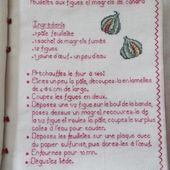 feuilletés aux figues et magrets de canard
Ingrédients
1 pâte feuilletée
1 sachet de magrets fumés
12 figues
1 jaune d'œuf - un peu d'eau
Préchauffez le four à 180°
Etirez un peu la pâte, découpez-la en lamelles
de 4 à 5 cm de large.
Coupez les figues en deux.
Déposez une 1/2 figue sur le bout de la bande,
posez dessus un magret recouvrez-la de
la 1/2 figue et roulez la pâte, coupez le surplus
collez à l'eau pour souder.
Déposez les feuilletés sur une plaque avec
du papier sulfurisé, puis dorez-les à l'œuf.
Enfournez pour 20 mn.
Dégustez tiède.